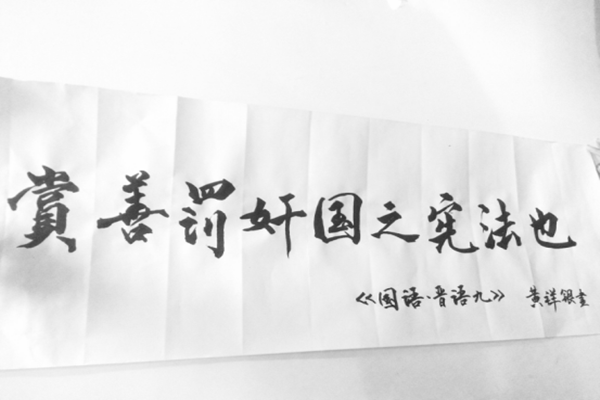 赏善罚奸国之宪法也
《国语·晋语九》 黄祥银书